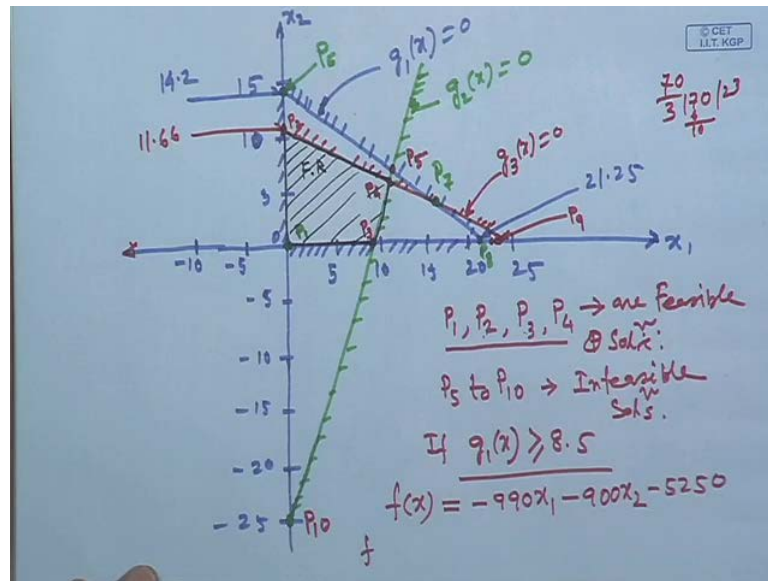 © CET
I.I.T. KGP
x₂
P₆
g₁(x)=0
g₂(x)=0
14.2
15
70/3
11.66
10
P₂
F.R
P₅
P₇
g₃(x)=0
21.25
5
P₄
P₁
P₃
P₈
P₉
x₁
-10 -5 0 5 10 15 20 25
-5
-10
-15
-20
-25
P₁₀
P₁, P₂, P₃, P₄ → are Feasible
Solⁿ:
P₅ to P₁₀ → Infeasible
Solⁿs.
If g₁(x) ≥ 8.5
f(x) = -990x₁ - 900x₂ - 5250
f